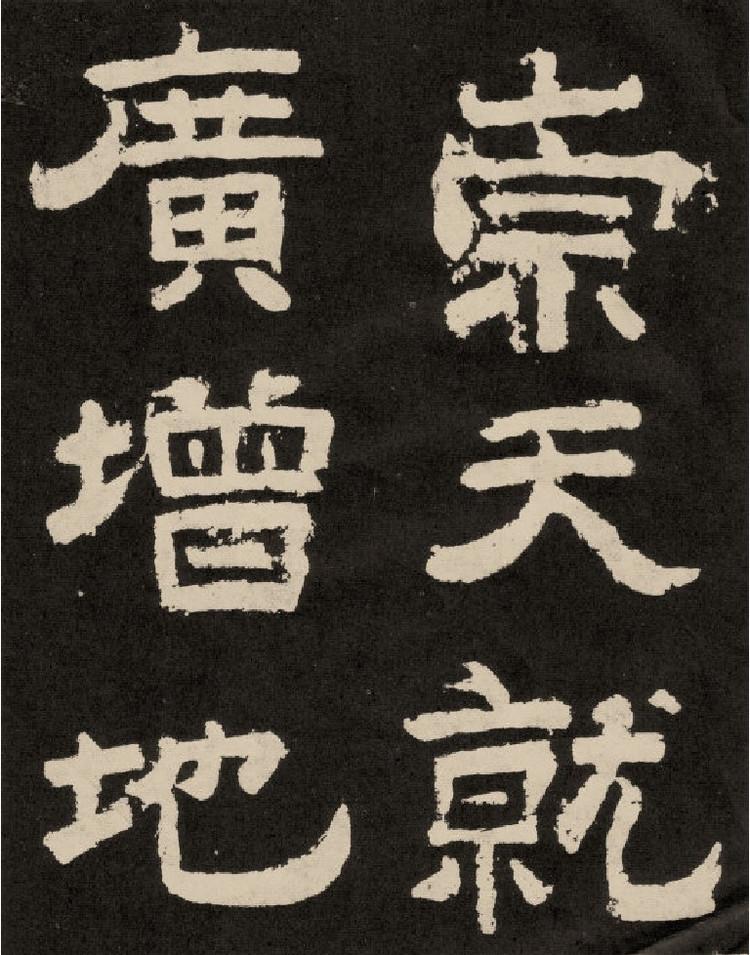 崇天就
廣增地